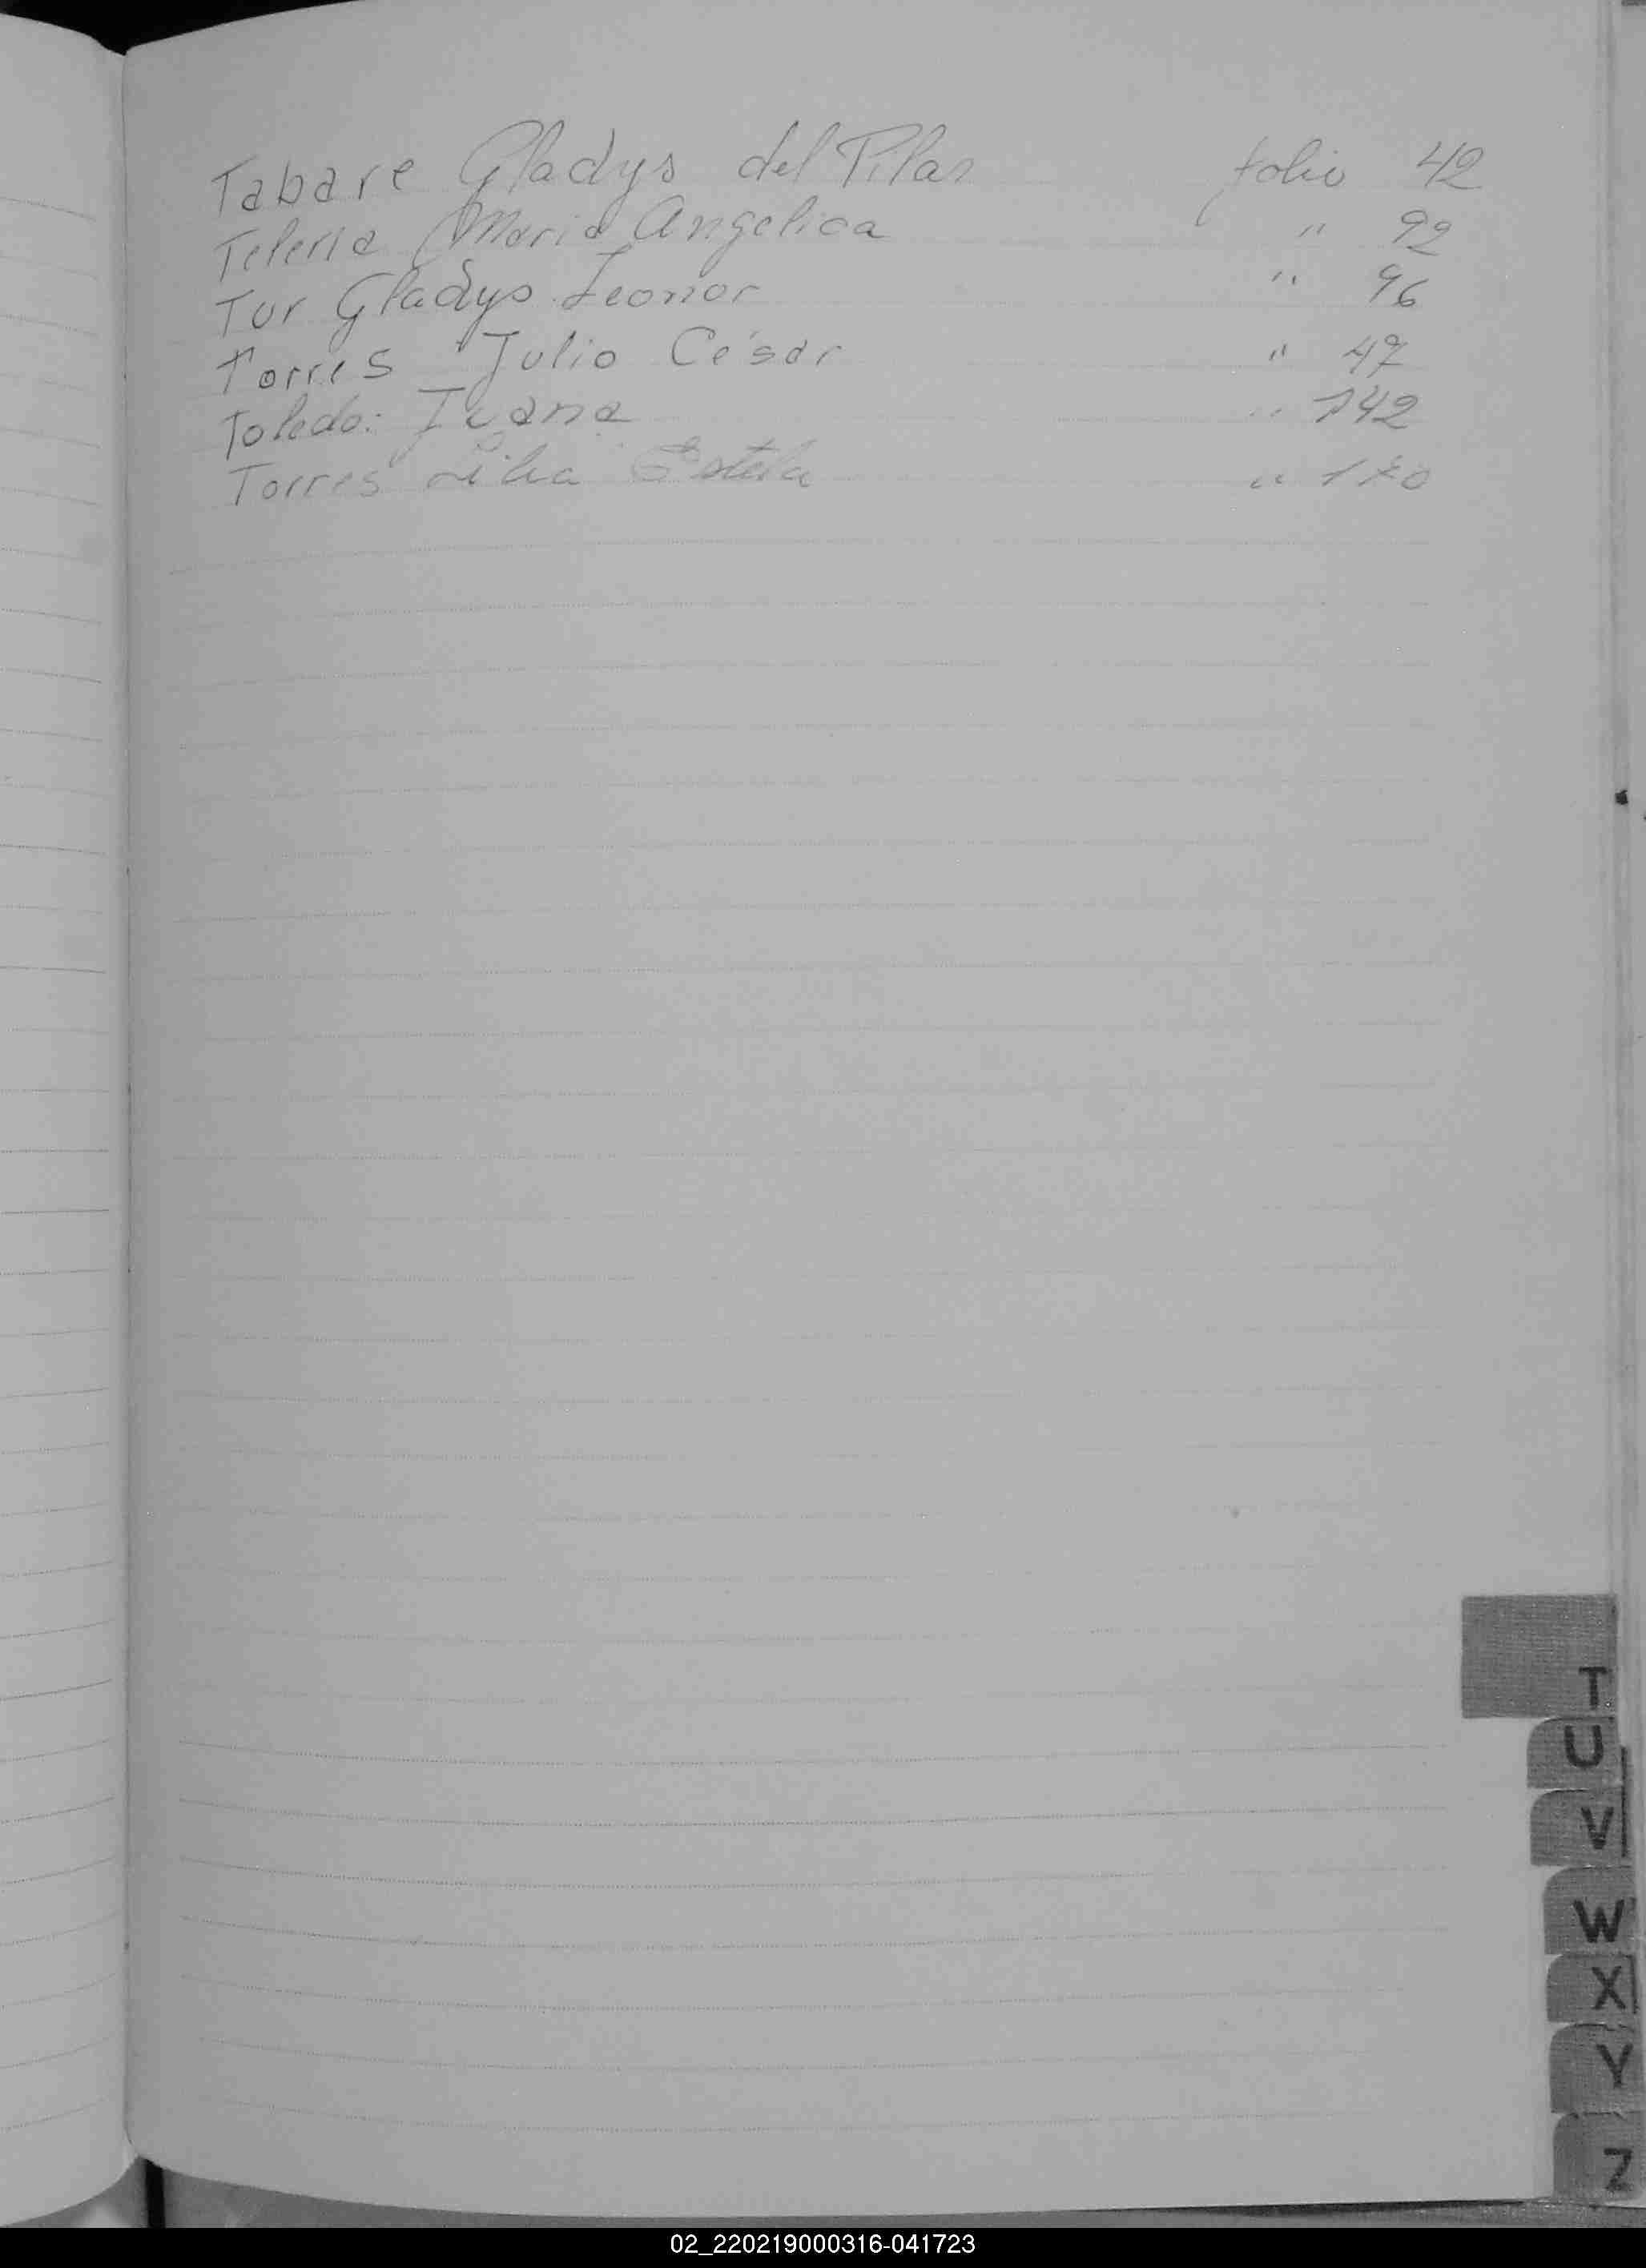 Tabare Gladys del Pilar folio 42
Teleria Maria Angelica " 92
Tur Gladys Leonor " 96
Torres Julio César " 47
Toledo: Ivana " 142
Torres Lilia Estela " 170
T
U
V
W
X
Y
Z
02_220219000316-041723